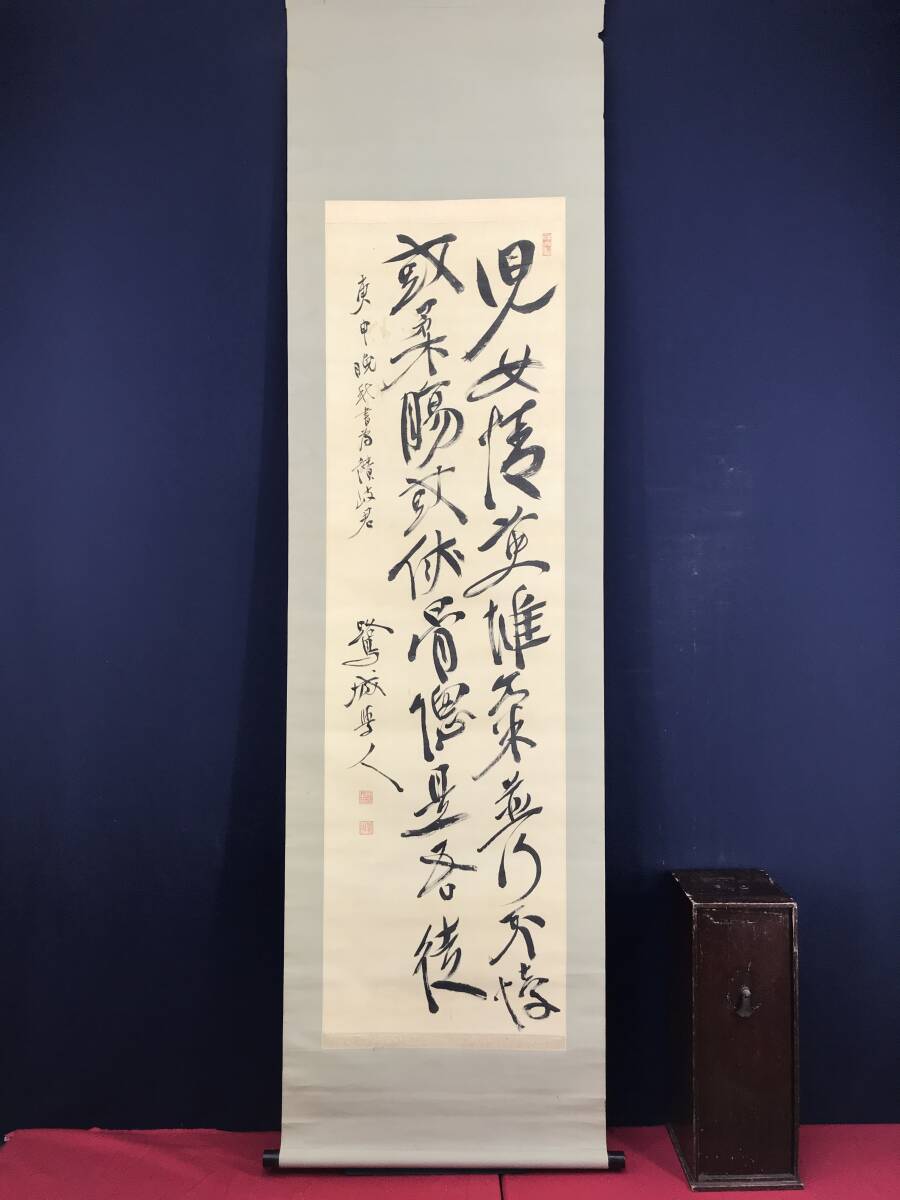 児女情英雄気並行不悖
或柔腸或侠骨總是吾徒
庚申晩秋書為讃岐君
鷺城學人